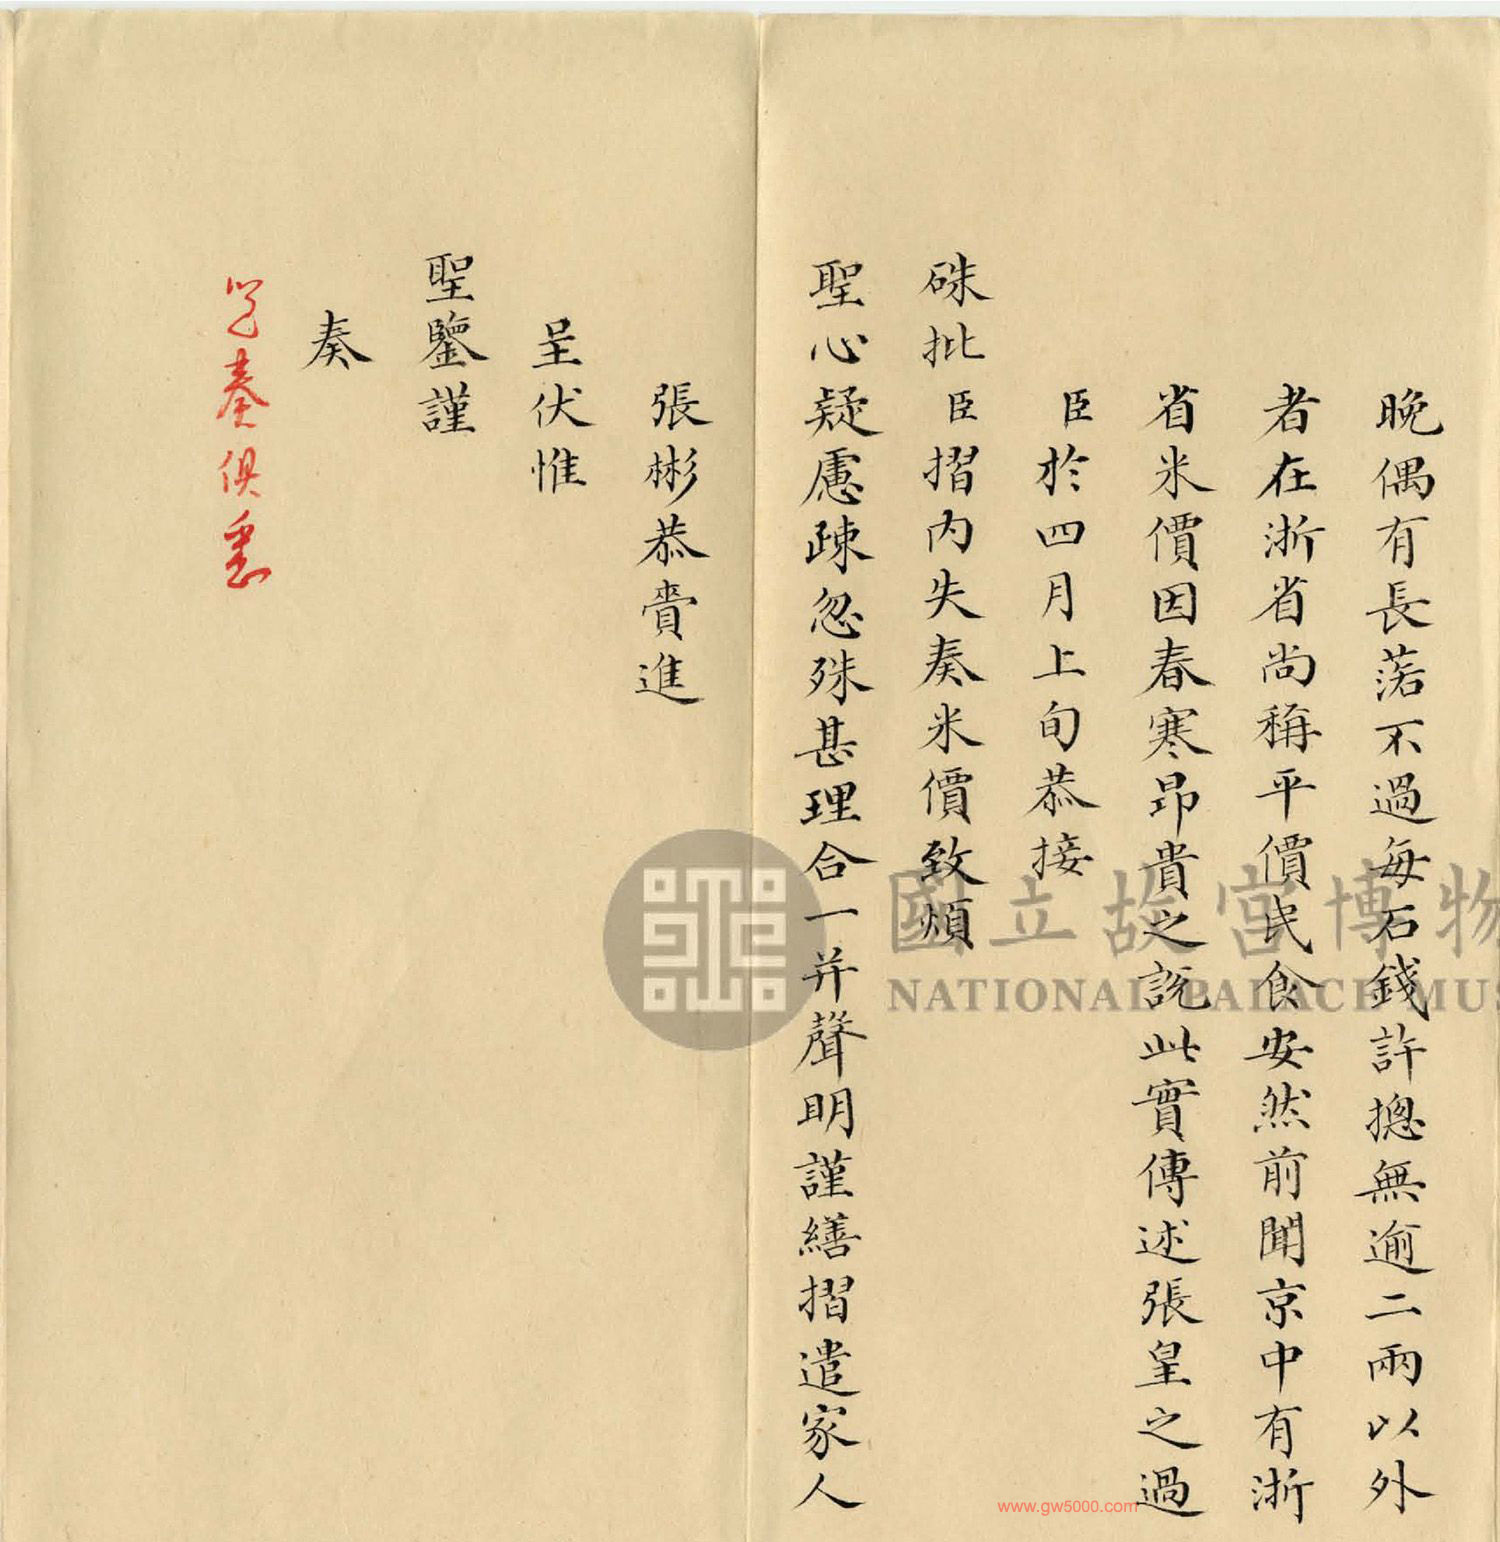 晚偶有長落不過每石錢許摠無逾二兩以外
者在浙省尚稱平價民食安然前聞京中有浙
省米價因春寒昂貴之說此實傳述張皇之過
臣於四月上旬恭接
硃批臣摺內失奏米價致煩
聖心疑慮疎忽殊甚理合一并聲明謹繕摺遣家人
張彬恭賫進
呈伏惟
聖鑒謹
奏
覽奏俱悉
國立故宮博物
NATIONAL PALACE MUS
www.gw5000.com